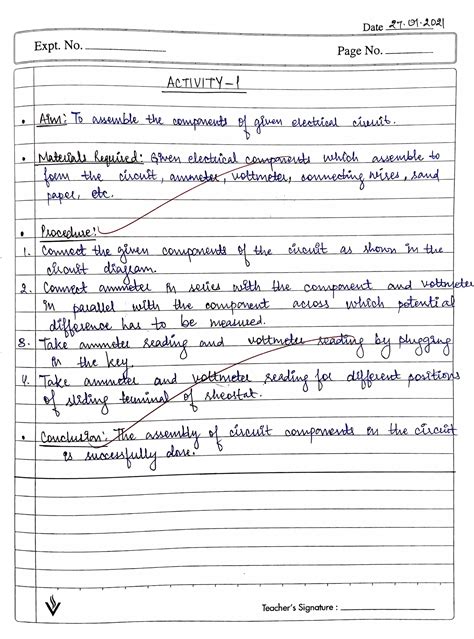 Date 27.01.2021
Expt. No.
Page No.
ACTIVITY-1
• Aim: To assemble the components of given electrical circuit.
• Materials Required: Given electrical components which assemble to
form the circuit, ammeter, voltmeter, connecting wires, sand
paper, etc.
• Procedure:
1. Connect the given components of the circuit as shown in the
circuit diagram.
2. Connect ammeter in series with the component and voltmeter
in parallel with the component across which potential
difference has to be measured.
3. Take ammeter reading and voltmeter reading by plugging
in the key.
4. Take ammeter and voltmeter reading for different positions
of sliding terminal of rheostat.
• Conclusion: The assembly of circuit components in the circuit
is successfully done.
Teacher's Signature :